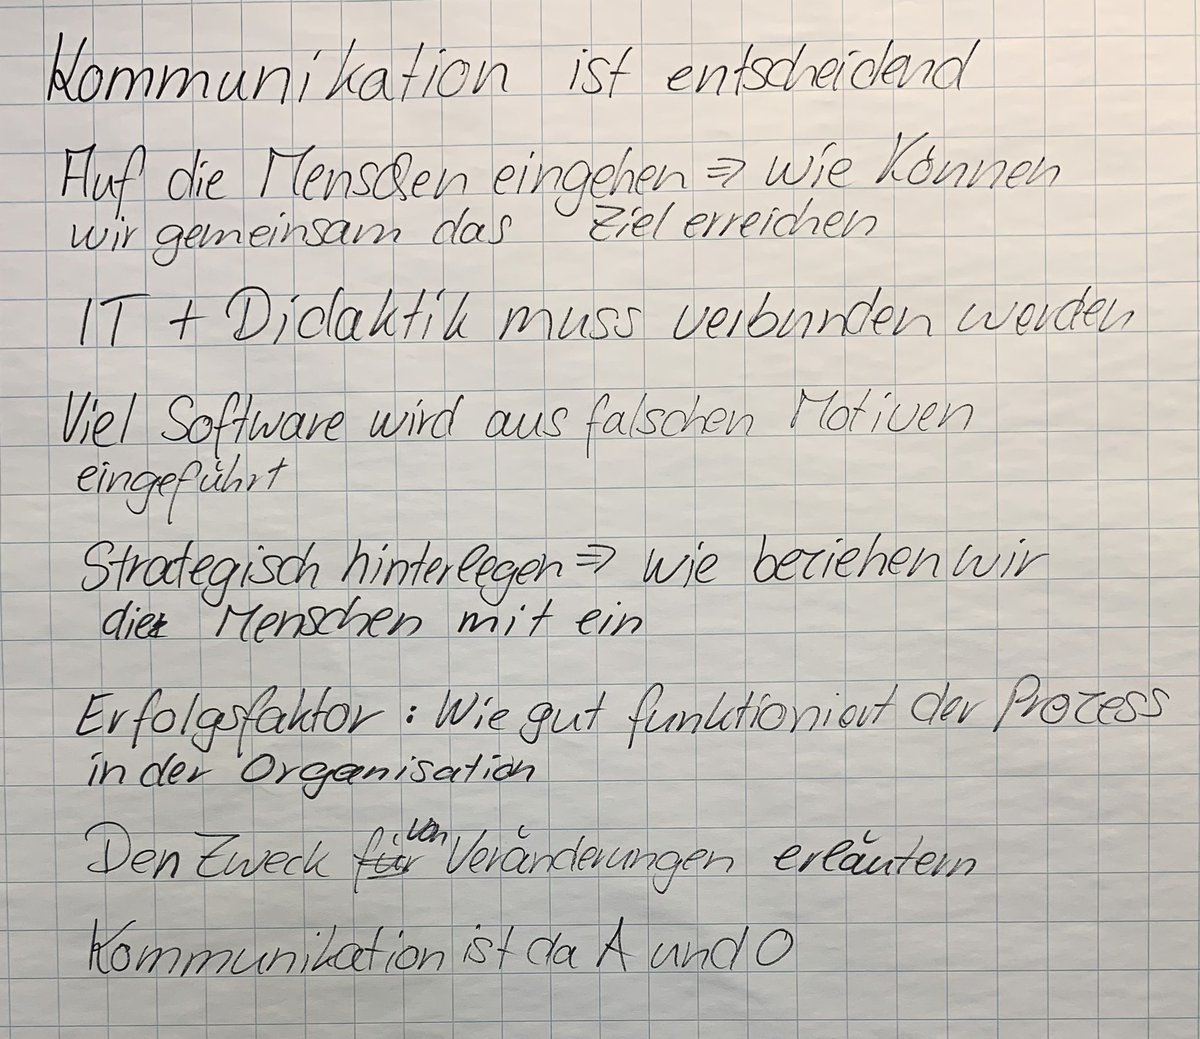 Kommunikation ist entscheidend
Auf die Menschen eingehen => wie können
wir gemeinsam das Ziel erreichen
IT + Didaktik muss verbunden werden
Viel Software wird aus falschen Motiven
eingeführt
Strategisch hinterlegen => wie beziehen wir
die Menschen mit ein
Erfolgsfaktor : Wie gut funktioniert der Prozess
in der Organisation
Den Zweck für von Veränderungen erläutern
Kommunikation ist da A und O